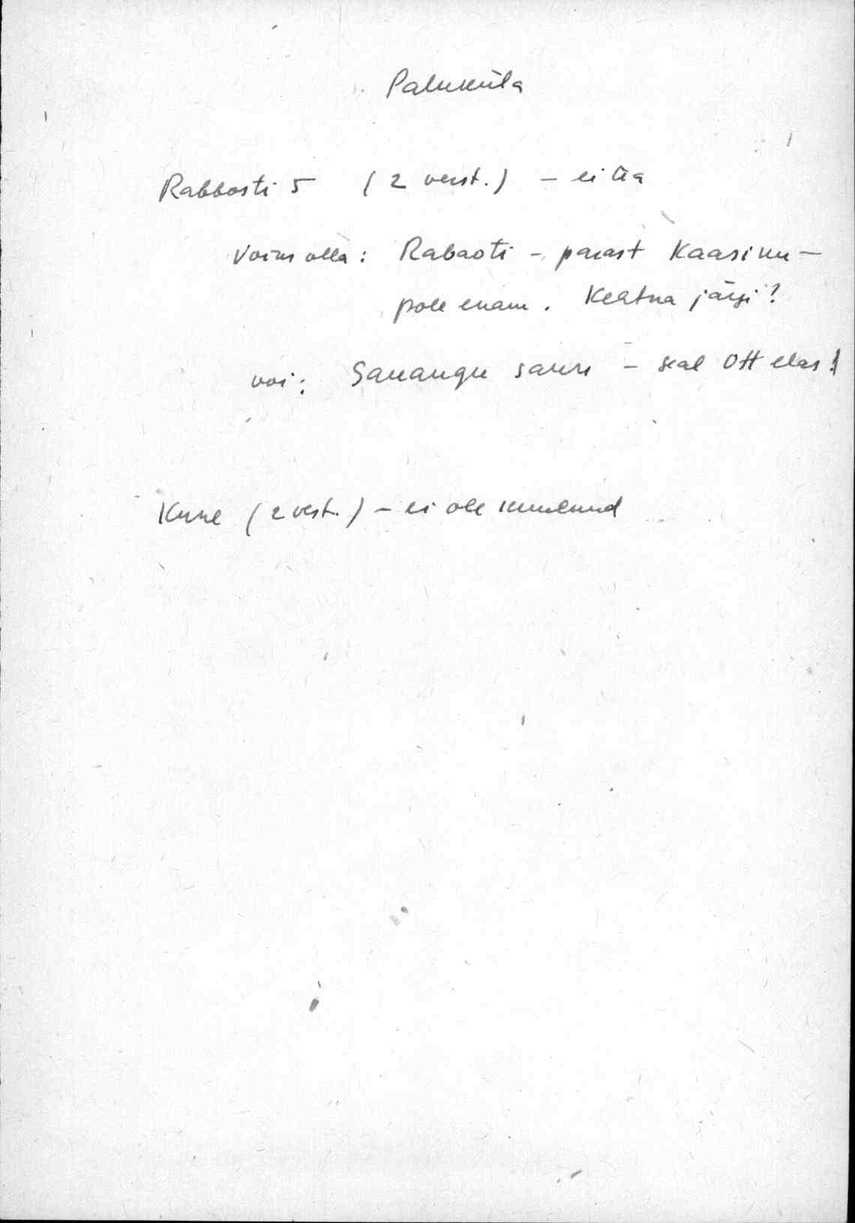 Paluküla
Rabbosti 5 (2 verst.) – ei tea
Võius olla: Rabaoti – pärast Kaasiku –
pole enam. Kehtna järgi?
või: Sauaugu saun – seal Ott elas!
Kure (2 verst.) – ei ole kuulnud